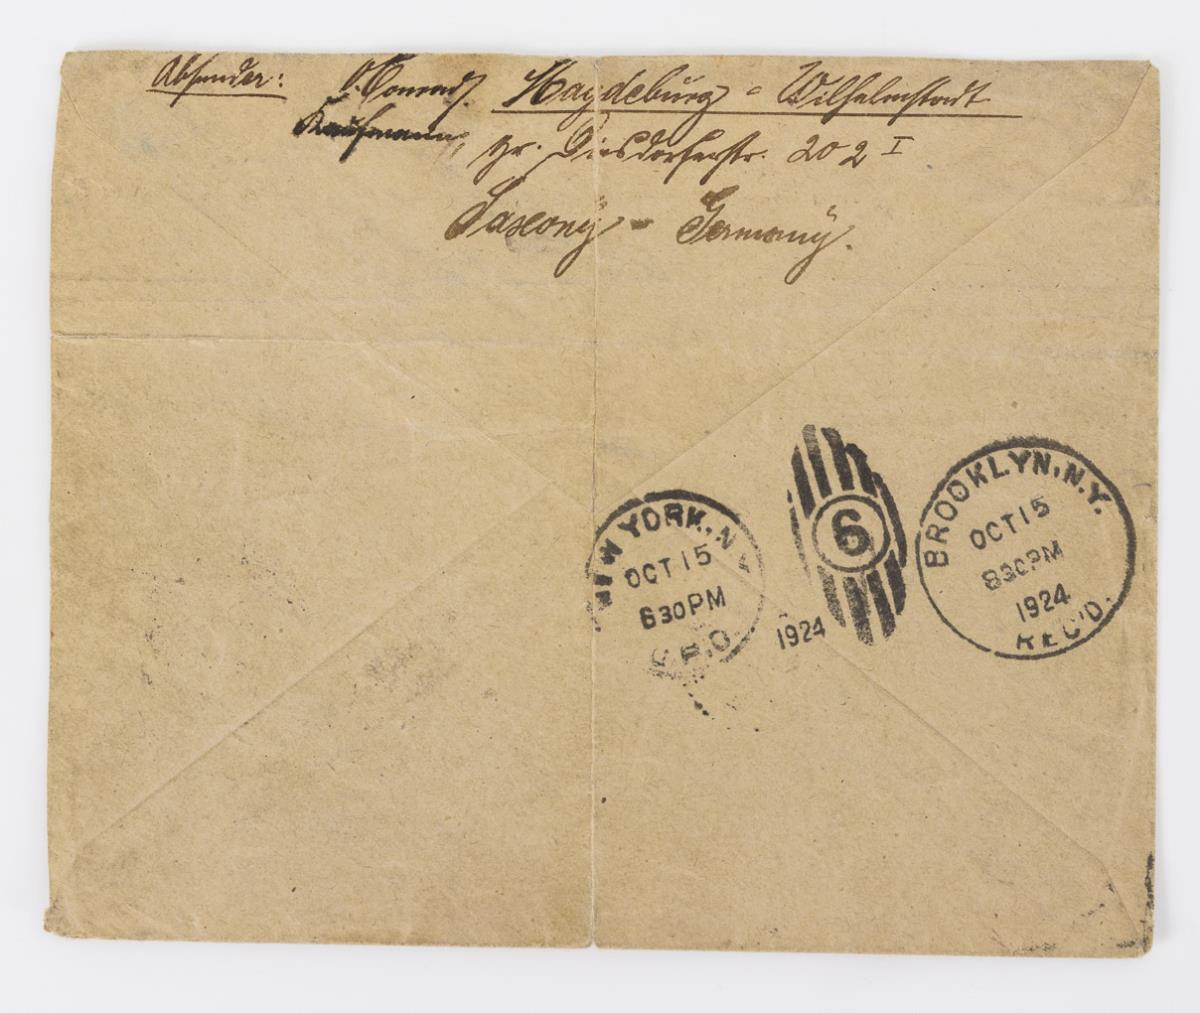 Absender: O. Conrad, Magdeburg - Wilhelmstadt
Kaufmann, gr. Diesdorferstr. 202 I
Saxony - Germany.
NEW YORK, N.Y.
OCT 15
630 PM
G.P.O.
1924
6
BROOKLYN, N.Y.
OCT 15
830 PM
1924
REC'D.